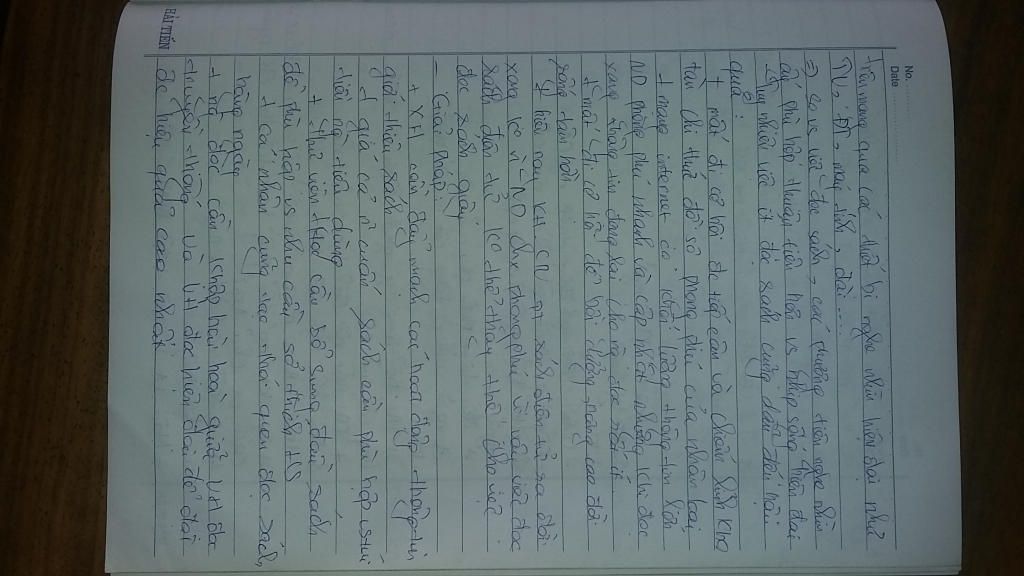 No.
Date
trên mạng qua các thiết bị nghe nhìn hiện đại như
TV, ĐT, máy tính, đài ...
=> so vs việc đọc sách, các phương tiện nghe nhìn
phù hợp thuận tiện hơn vs nhịp sống hiện đại
Tuy nhiên việc ít đọc sách cũng dẫn đến hậu
quả:
+ mất đi cơ hội đc tiếp cận và chiếm lĩnh kho
tàn tri thức đồ sộ phong phú của nhân loại
+ mạng internet có khối lượng thông tin lớn
ND phong phú nhanh và cập nhật nhưng khi đọc
xong thông tin đọng lại
+ mất đi cơ hội để bồi dưỡng nâng cao đời
sống tâm hồn
+ hiện nay sách điện tử ra đời
song ko vì ND phong phú vì vậy việc đọc
sách điện tử ko thể thay thế cho việc
đọc sách giấy
- Giải pháp:
+ XH cần đẩy mạnh các hoạt động thông tin
giới thiệu sách
+ giá cả in cuốn sách cần phù hợp với
túi ng tiêu dùng
+ thư viện cần bổ sung đầu sách
để phù hợp vs nhu cầu sở thích HS
+ cá nhân cũng tạo thói quen đọc sách
hằng ngày
+ ng đọc cần kết hợp hài hoà giữa VH đọc
truyền thống và VH đọc hiện đại để đạt
đc hiệu quả cao nhất
HẢI TIẾN